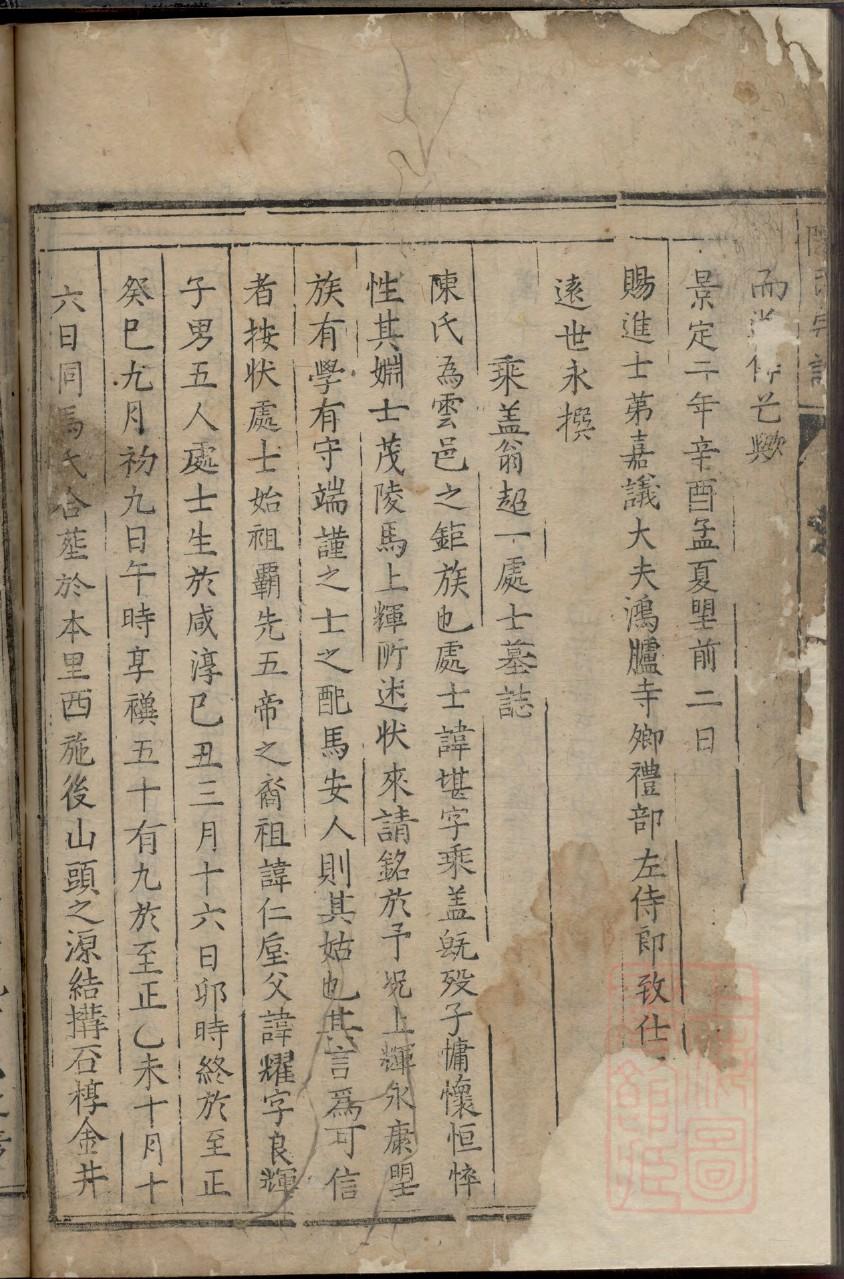 陳氏宗譜
而
亡歟
景定二年辛酉孟夏朢前二日
賜進士第嘉議大夫鴻臚寺卿禮部左侍郎致仕
遠世永撰
乘盖翁超一處士墓誌
陳氏為雲邑之鉅族也處士諱堪字乘盖旣殁子慵懷恒悴
性其婣士茂陵馬上輝所述状來請銘於予况上輝永康朢
族有學有守端謹之士之配馬安人則其姑也其言爲可信
者按状處士始祖覇先五帝之裔祖諱仁垕父諱耀字良輝
子男五人處士生於咸淳已丑三月十六日卯時終於至正
癸巳九月初九日午時享襀五十有九於至正乙未十月十
六日同馬氏合塟於本里西施後山頭之源結搆石椁金井